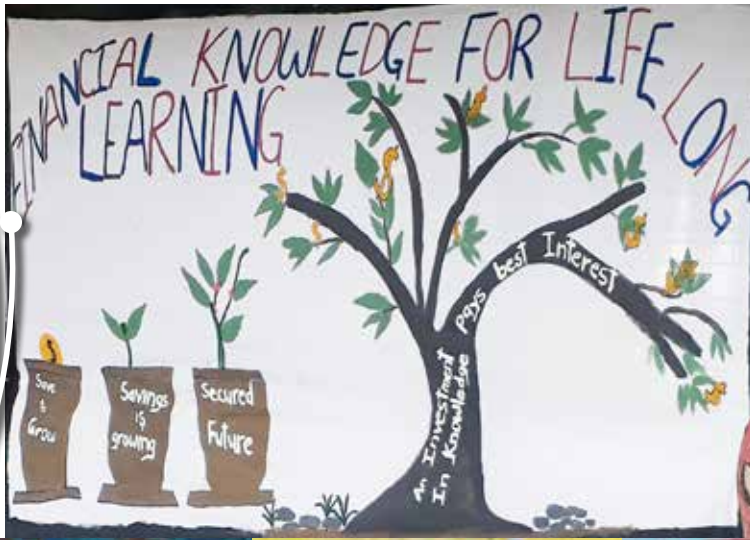 FINANCIAL KNOWLEDGE FOR LIFE LONG
LEARNING
Save
&
Grow
Savings
is
growing
Secured
Future
An Investment
In Knowledge
Pays best Interest